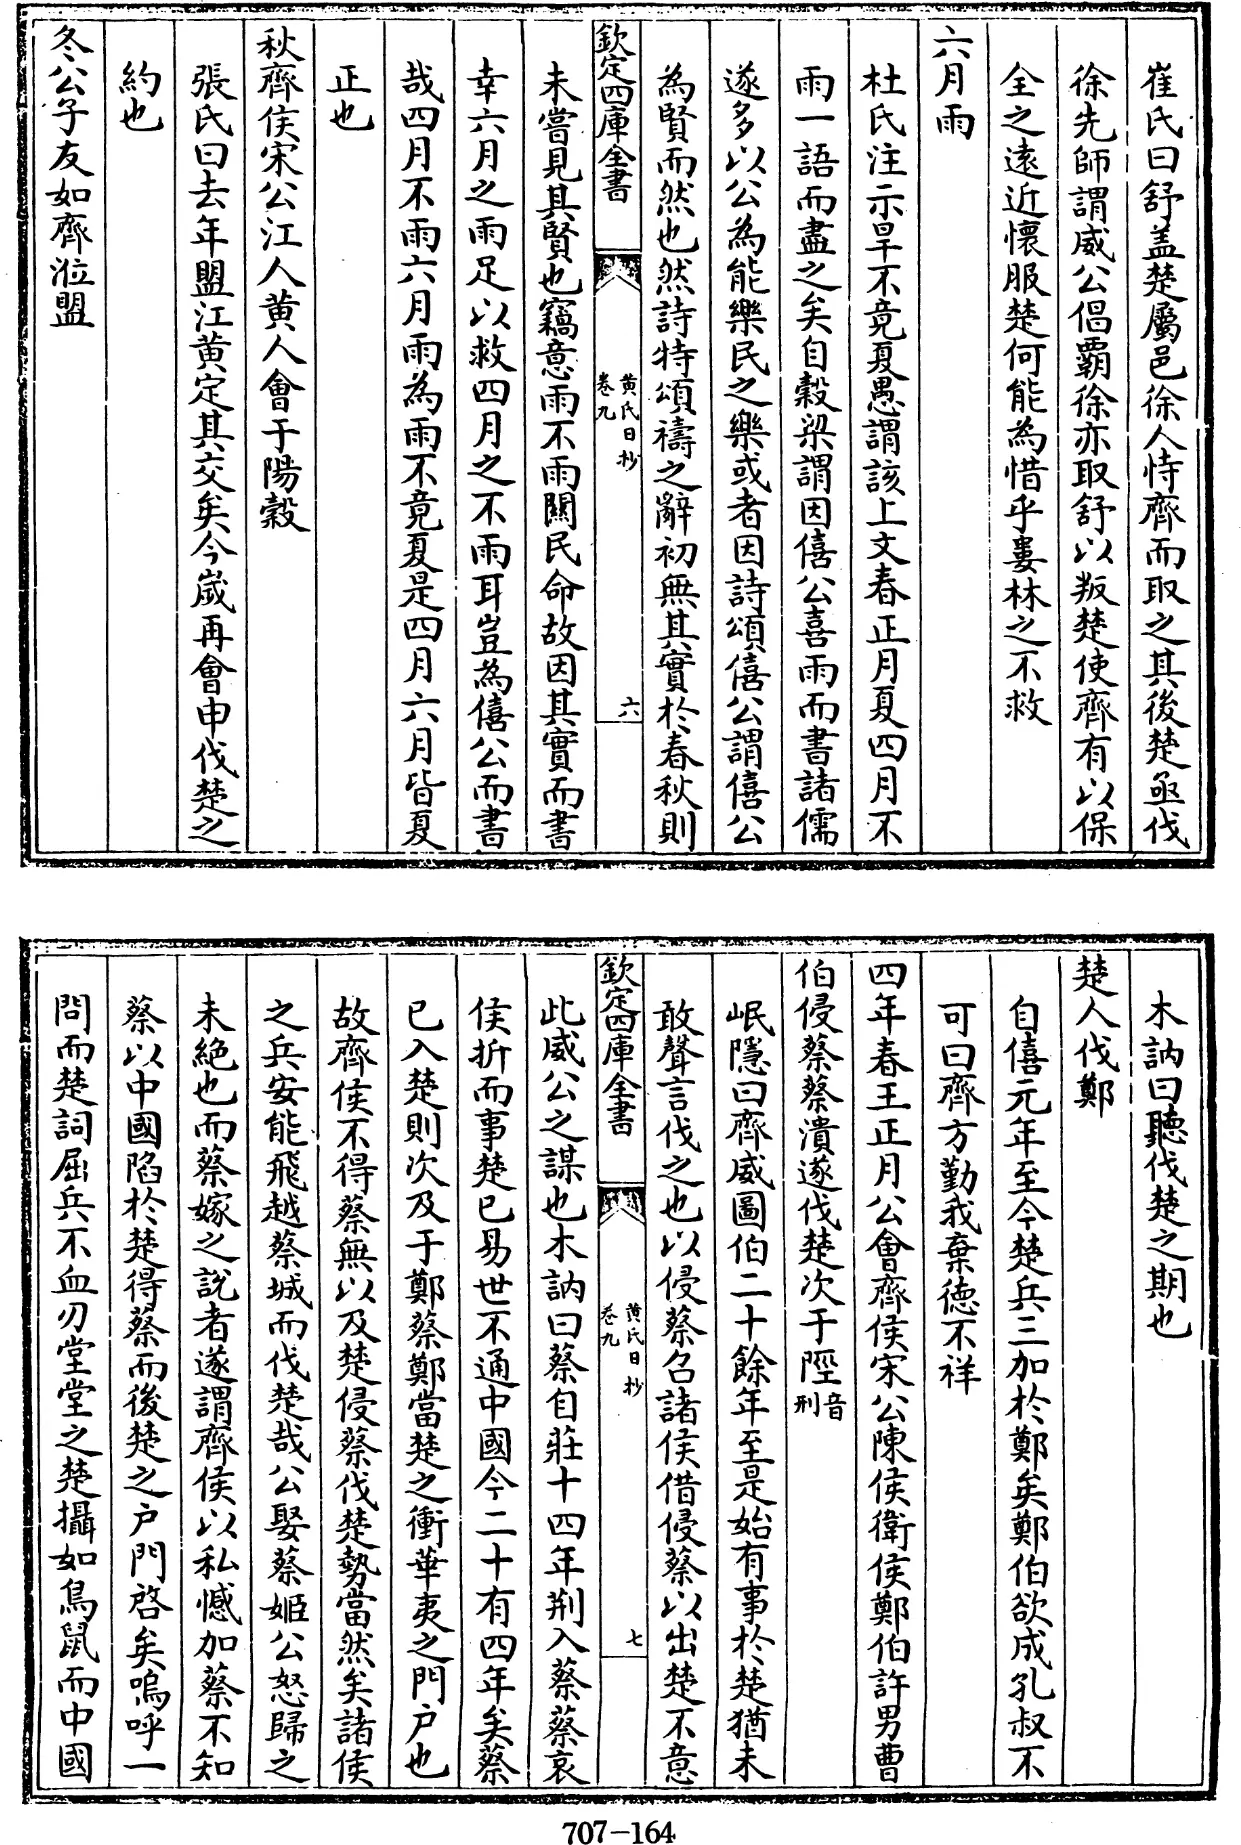 崔氏曰舒盖楚屬邑徐人恃齊而取之其後楚亟伐
徐先師謂威公倡霸徐亦取舒以叛楚使齊有以保
全之遠近懷服楚何能為惜乎婁林之不救
六月雨
杜氏注示旱不竟夏愚謂該上文春正月夏四月不
雨一語而盡之矣自穀梁謂因僖公喜雨而書諸儒
遂多以公為能樂民之樂或者因詩頌僖公謂僖公
為賢而然也然詩特頌禱之辭初無其實於春秋則
欽定四庫全書
黄氏日抄
卷九
六
未嘗見其賢也竊意雨不雨關民命故因其實而書
幸六月之雨足以救四月之不雨耳豈為僖公而書
哉四月不雨六月雨為雨不竟夏是四月六月皆夏
正也
秋齊侯宋公江人黄人會于陽穀
張氏曰去年盟江黄定其交矣今歲再會申伐楚之
約也
冬公子友如齊涖盟
木訥曰聽伐楚之期也
楚人伐鄭
自僖元年至今楚兵三加於鄭矣鄭伯欲成孔叔不
可曰齊方勤我棄德不祥
四年春王正月公會齊侯宋公陳侯衛侯鄭伯許男曹
伯侵蔡蔡潰遂伐楚次于陘音刑
岷隱曰齊威圖伯二十餘年至是始有事於楚猶未
敢聲言伐之也以侵蔡召諸侯借侵蔡以出楚不意
欽定四庫全書
黄氏日抄
卷九
七
此威公之謀也木訥曰蔡自莊十四年荆入蔡蔡哀
侯折而事楚已易世不通中國今二十有四年矣蔡
已入楚則次及于鄭蔡鄭當楚之衝華夷之門户也
故齊侯不得蔡無以及楚侵蔡伐楚勢當然矣諸侯
之兵安能飛越蔡城而伐楚哉公娶蔡姬公怒歸之
未絶也而蔡嫁之説者遂謂齊侯以私憾加蔡不知
蔡以中國陷於楚得蔡而後楚之户門啓矣嗚呼一
問而楚詞屈兵不血刃堂堂之楚攝如鳥鼠而中國
707-164